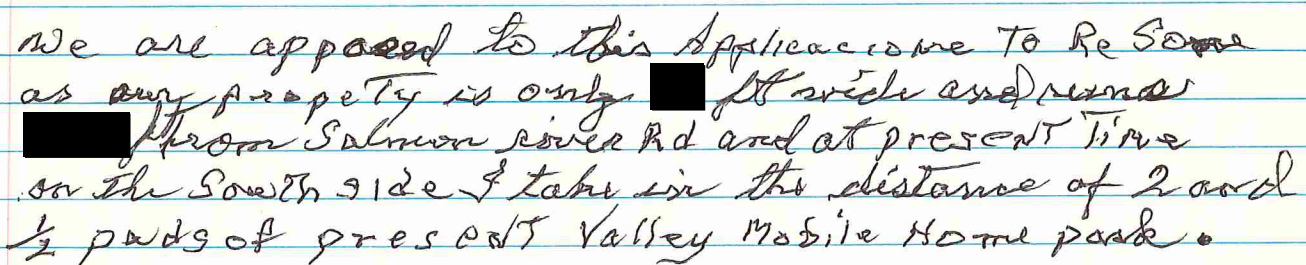 We are appoosed to this Applicacione To Re Sone
as our propeTy is only ft wide and runs
from Salmon river Rd and at preseNT Time
on The SowTh side I take in the distance of 2 and
½ pads of preseNT Valley Mobile Home park.